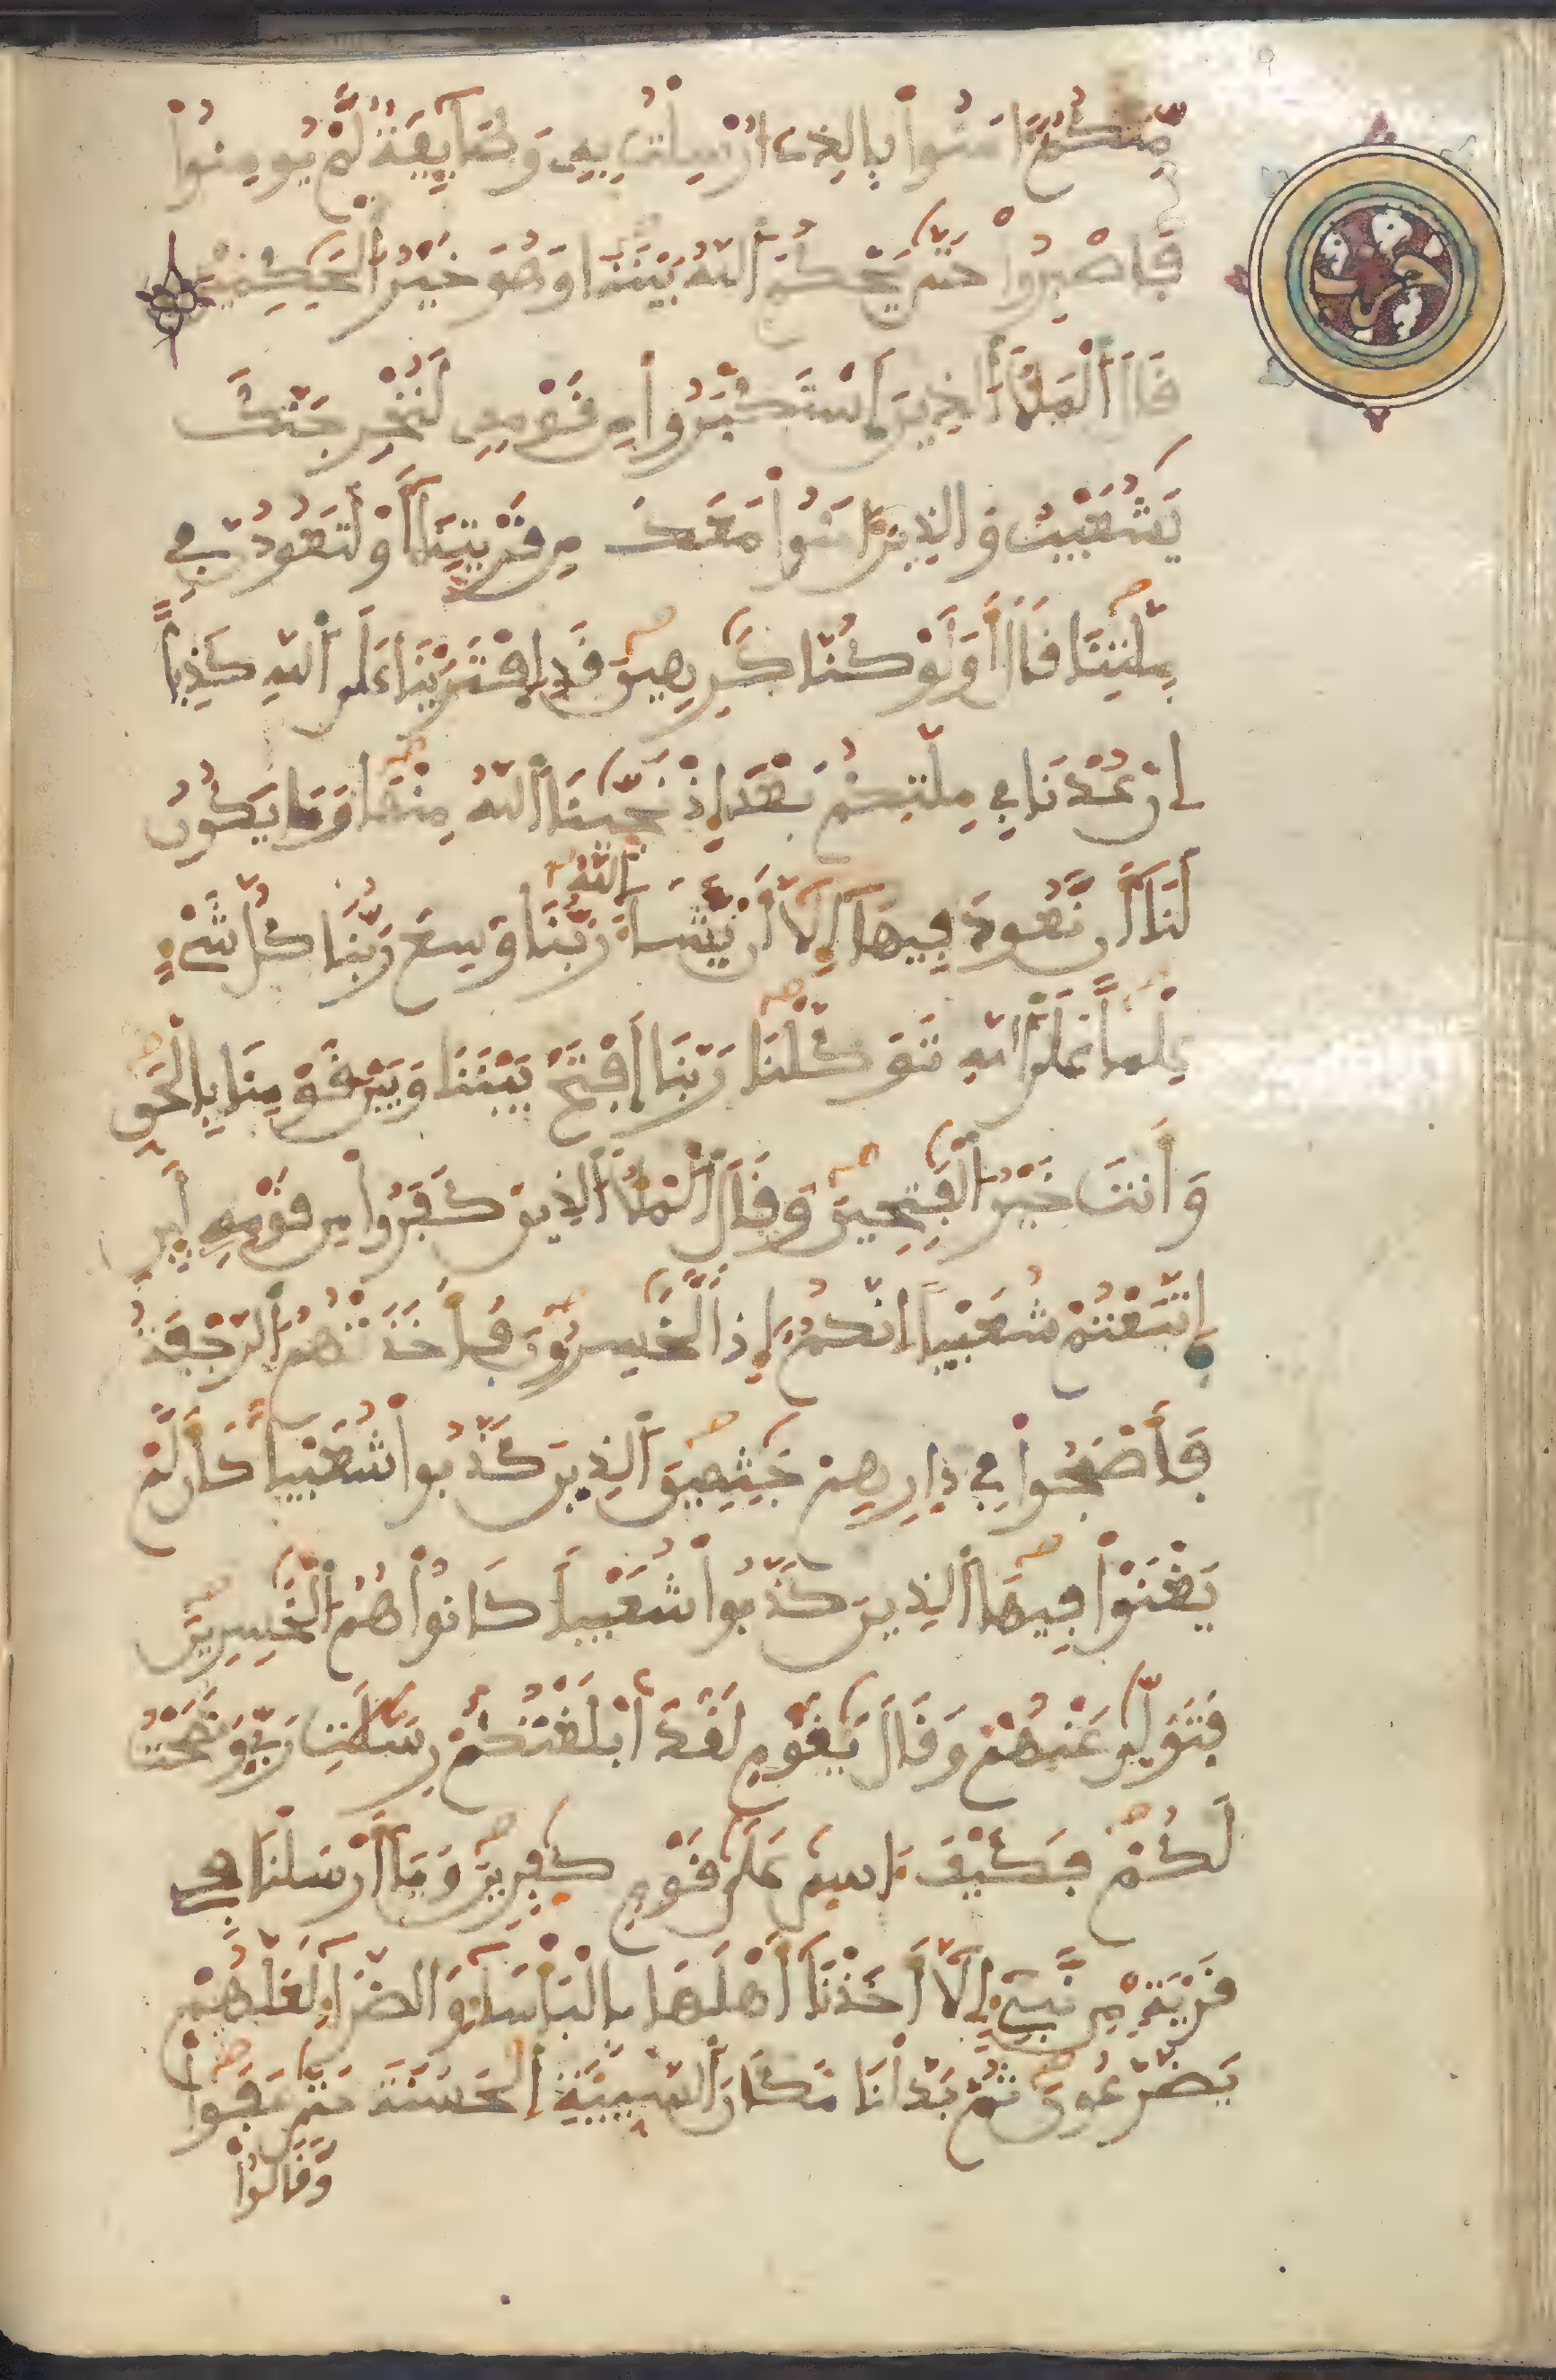 مِّنكُمُۥٓ ءَامَنُوا۟ بِالذِےٓ أُرْسِلْتُ بِهِۦ وَطَآئِفَةٌ لَّمْ يُومِنُوا۟
فَاصْبِرُوا۟ حَتَّىٰ يَحْكُمَ اَ۬للَّهُ بَيْنَنَا وَهُوَ خَيْرُ اُ۬لْحَٰكِمِينَ
قَالَ اَ۬لْمَلَأُ اُ۬لذِينَ اَ۪سْتَكْبَرُوا۟ مِن قَوْمِهِۦ لَنُخْرِجَنَّكَ
يَٰشُعَيْبُ وَالذِينَ ءَامَنُوا۟ مَعَكَ مِن قَرْيَتِنَآ أَوْ لَتَعُودُنَّ فِے
مِلَّتِنَا قَالَ أَوَلَوْ كُنَّا كَٰرِهِينَ قَدِ اِ۪فْتَرَيْنَا عَلَى اَ۬للَّهِ كَذِباً
إِنْ عُدْنَا فِے مِلَّتِكُم بَعْدَ إِذْ نَجَّىٰنَا اَ۬للَّهُ مِنْهَا وَمَا يَكُونُ
لَنَآ أَن نَّعُودَ فِيهَآ إِلَّآ أَنْ يَّشَآءَ اَ۬للَّهُ رَبُّنَا وَسِعَ رَبُّنَا كُلَّ شَےْءٍ
عِلْماً عَلَى اَ۬للَّهِ تَوَكَّلْنَا رَبَّنَا اَ۪فْتَحْ بَيْنَنَا وَبَيْنَ قَوْمِنَا بِالْحَقِّ
وَأَنتَ خَيْرُ اُ۬لْفَٰتِحِينَ وَقَالَ اَ۬لْمَلَأُ اُ۬لذِينَ كَفَرُوا۟ مِن قَوْمِهِۦ لَئِنِ
اِ۪تَّبَعْتُمْ شُعَيْباً إِنَّكُمُۥٓ إِذاً لَّخَٰسِرُونَ فَأَخَذَتْهُمُ اُ۬لرَّجْفَةُ
فَأَصْبَحُوا۟ فِے دِارِهِمْ جَٰثِمِينَ اَ۬لذِينَ كَذَّبُوا۟ شُعَيْباً كَأَن لَّمْ
يَغْنَوْا۟ فِيهَا اَ۬لذِينَ كَذَّبُوا۟ شُعَيْباً كَانُوا۟ هُمُ اُ۬لْخَٰسِرِينَ
فَتَوَلَّىٰ عَنْهُمْ وَقَالَ يَٰقَوْمِ لَقَدَ اَبْلَغْتُكُمْ رِسَٰلَٰتِ رَبِّے وَنَصَحْتُ
لَكُمْ فَكَيْفَ ءَاسِىٰ عَلَىٰ قَوْمٍ كٰفِرِينَ وَمَآ أَرْسَلْنَا فِے
قَرْيَةٍ مِّن نَّبِےٓءٍ اِلَّآ أَخَذْنَآ أَهْلَهَا بِالْبَأْسَآءِ وَالضَّرَّآءِ لَعَلَّهُمْ
يَضَّرَّعُونَ ثُمَّ بَدَّلْنَا مَكَانَ اَ۬لسَّيِّئَةِ اِ۬لْحَسَنَةَ حَتَّىٰ عَفَوا۟
وَّقَالُوا۟